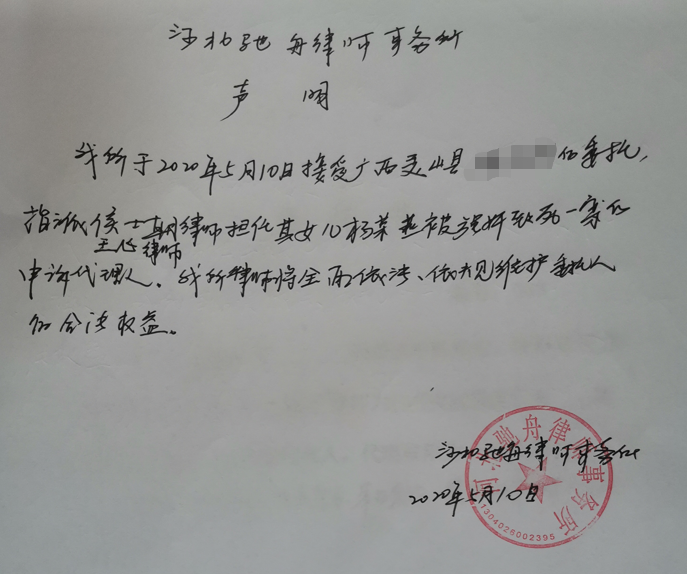 河北驰舟律师事务所
声 明
我所于2020年5月10日接受广西灵山县 的委托,
指派侯士朝律师担任其女儿杨某燕被强奸致死一案的
王心律师
申诉代理人。我所律师将全面依法、依规维护委托人
的合法权益。
河北驰舟律师事务所
2020年5月10日
河北驰舟律师事务所
1304026002395